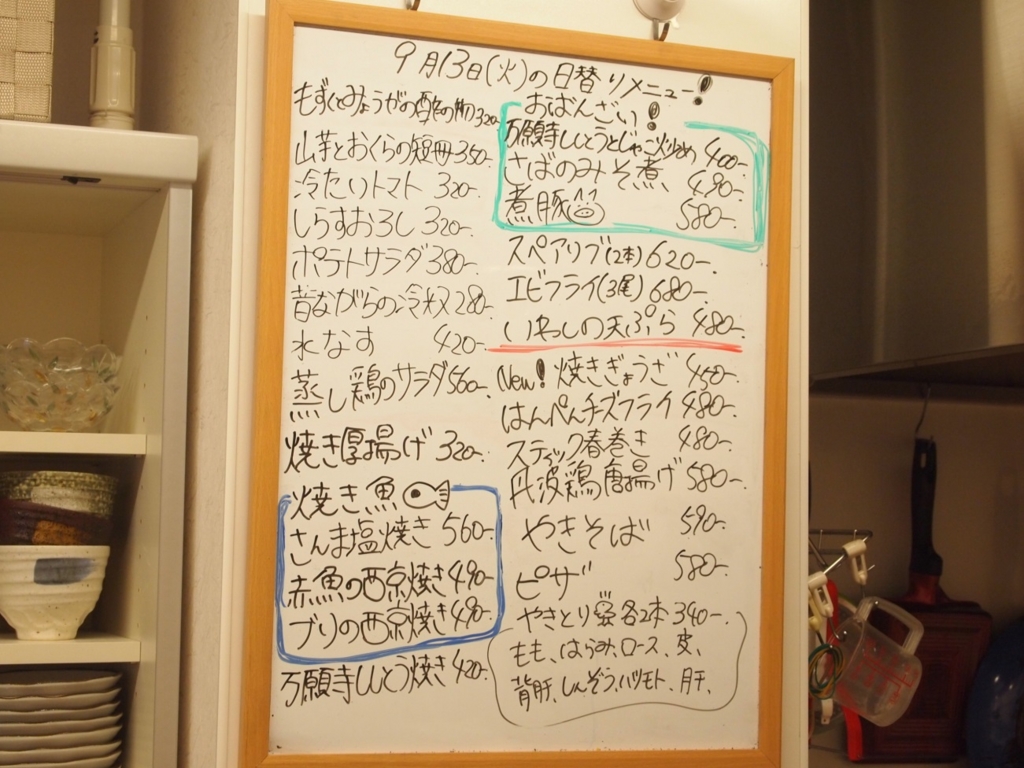 9月13日(火)の日替りメニュー!
もずくとみょうがの酢の物 320-
山芋とおくらの短冊 350-
冷たいトマト 320-
しらすおろし 320-
ポテトサラダ 380-
昔ながらの冷奴 280-
水なす 420-
蒸し鶏のサラダ 560-
焼き厚揚げ 320-
焼き魚
さんま塩焼き 560-
赤魚の西京焼き 490-
ブリの西京焼き 490-
万願寺しし とう焼き 420-
おばんざい!
万願寺ししとうとじゃこ炒め 400-
さばのみそ煮、 490-
煮豚 580-
スペアリブ(2本) 620-
エビフライ(3尾) 680-
いわしの天ぷら 480-
New! 焼きぎょうざ 450-
はんぺんチーズフライ 480-
スティック春巻き 480-
丹波鶏唐揚げ 580-
やきそば 590-
ピザ 580-
やきとり 各2本 340-
もも、はらみ、ロース、皮、
背肝、しんぞう、ハツモト、肝、